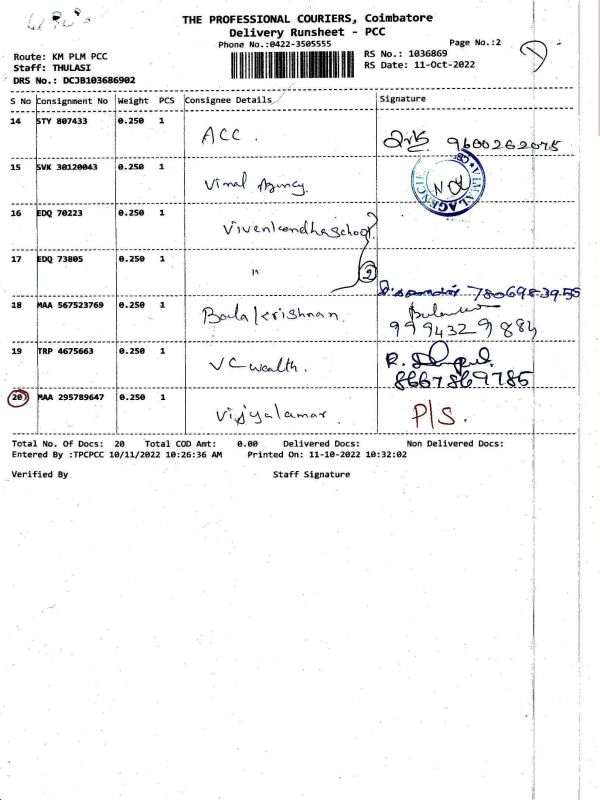 THE PROFESSIONAL COURIERS, Coimbatore
Delivery Runsheet - PCC
Phone No.:0422-3505555
Page No.:2
Route: KM PLM PCC
RS No.: 1036869
Staff: THULASI
RS Date: 11-Oct-2022
DRS No.: DCJB103686902
S No Consignment No Weight PCS Consignee Details Signature
14 STY 807433 0.250 1 ACC. 9600262075
15 SVK 30120043 0.250 1 Vimal Agency. VIMAL AGENCY
16 EDQ 70223 0.250 1 Vivenkandha school
17 EDQ 73805 0.250 1 " 2 780698-39-55
18 MAA 567523769 0.250 1 Balakrishnan.
9994329884
19 TRP 4675663 0.250 1 VC wealth.
8667869785
20 MAA 295789647 0.250 1 Vijyalamar P/S.
Total No. Of Docs: 20 Total COD Amt: 0.00 Delivered Docs: Non Delivered Docs:
Entered By :TPCPCC 10/11/2022 10:26:36 AM Printed On: 11-10-2022 10:32:02
Verified By Staff Signature